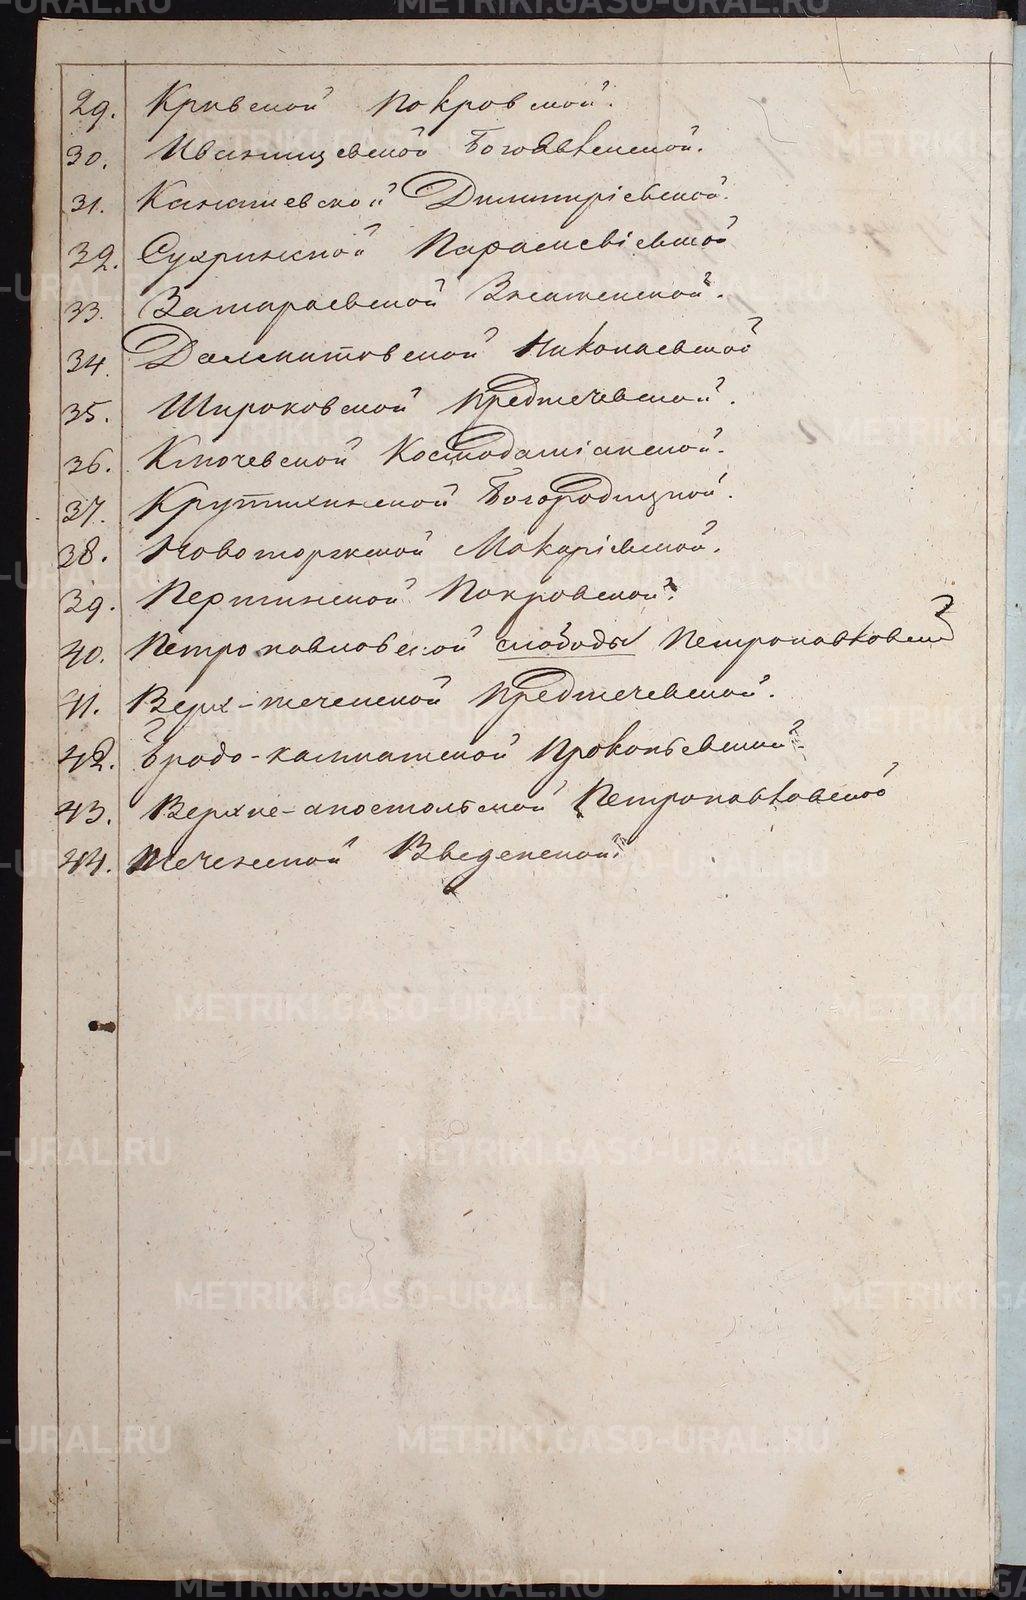 29. Кривской Покровской.
30. Иванищевской Богоявленской.
31. Канашевской Димитріевской.
32. Сухринской Параскевіевской
33. Замараевской Знаменской.
34. Далматовской Николаевской
35. Широковской Предтечевской.
36. Ключевской Космодаміанской.
37. Крутихинской Богородицкой.
38. Новоторжской Макаріевской.
39. Першинской Покровской.
40. Петропавловской слободы Петропавловской
41. Верх-теченской Предтечевской.
42. Бродо-калматской Прокопьевской
43. Верхне-апостольской Петропавловской
44. Теченской Введенской.
METRIKI.GASO-URAL.RU